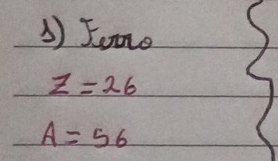 1) Ferro
Z = 26
A = 56